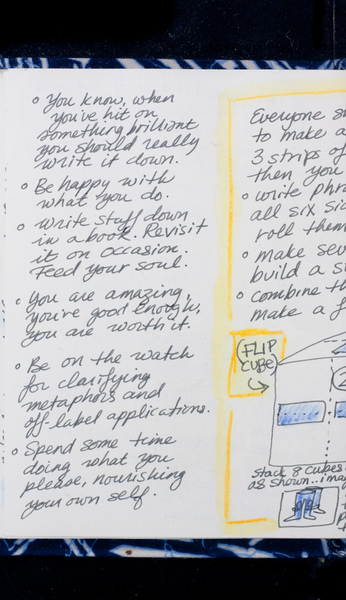 o You know, when
you've hit on
something brilliant
you should really
write it down.
o Be happy with
what you do.
o Write stuff down
in a book. Revisit
it on occasion.
Feed your soul.
o You are amazing,
you're good enough,
you are worth it.
o Be on the watch
for clarifying
metaphors and
off-label applications.
o Spend some time
doing what you
please, nourishing
your own self.
Everyone
to make a
3 strips of
then you
o write
all six
roll them
o make
build a
o combine
make a
(FLIP
CUBE)
2
stack 8 cubes
as shown..